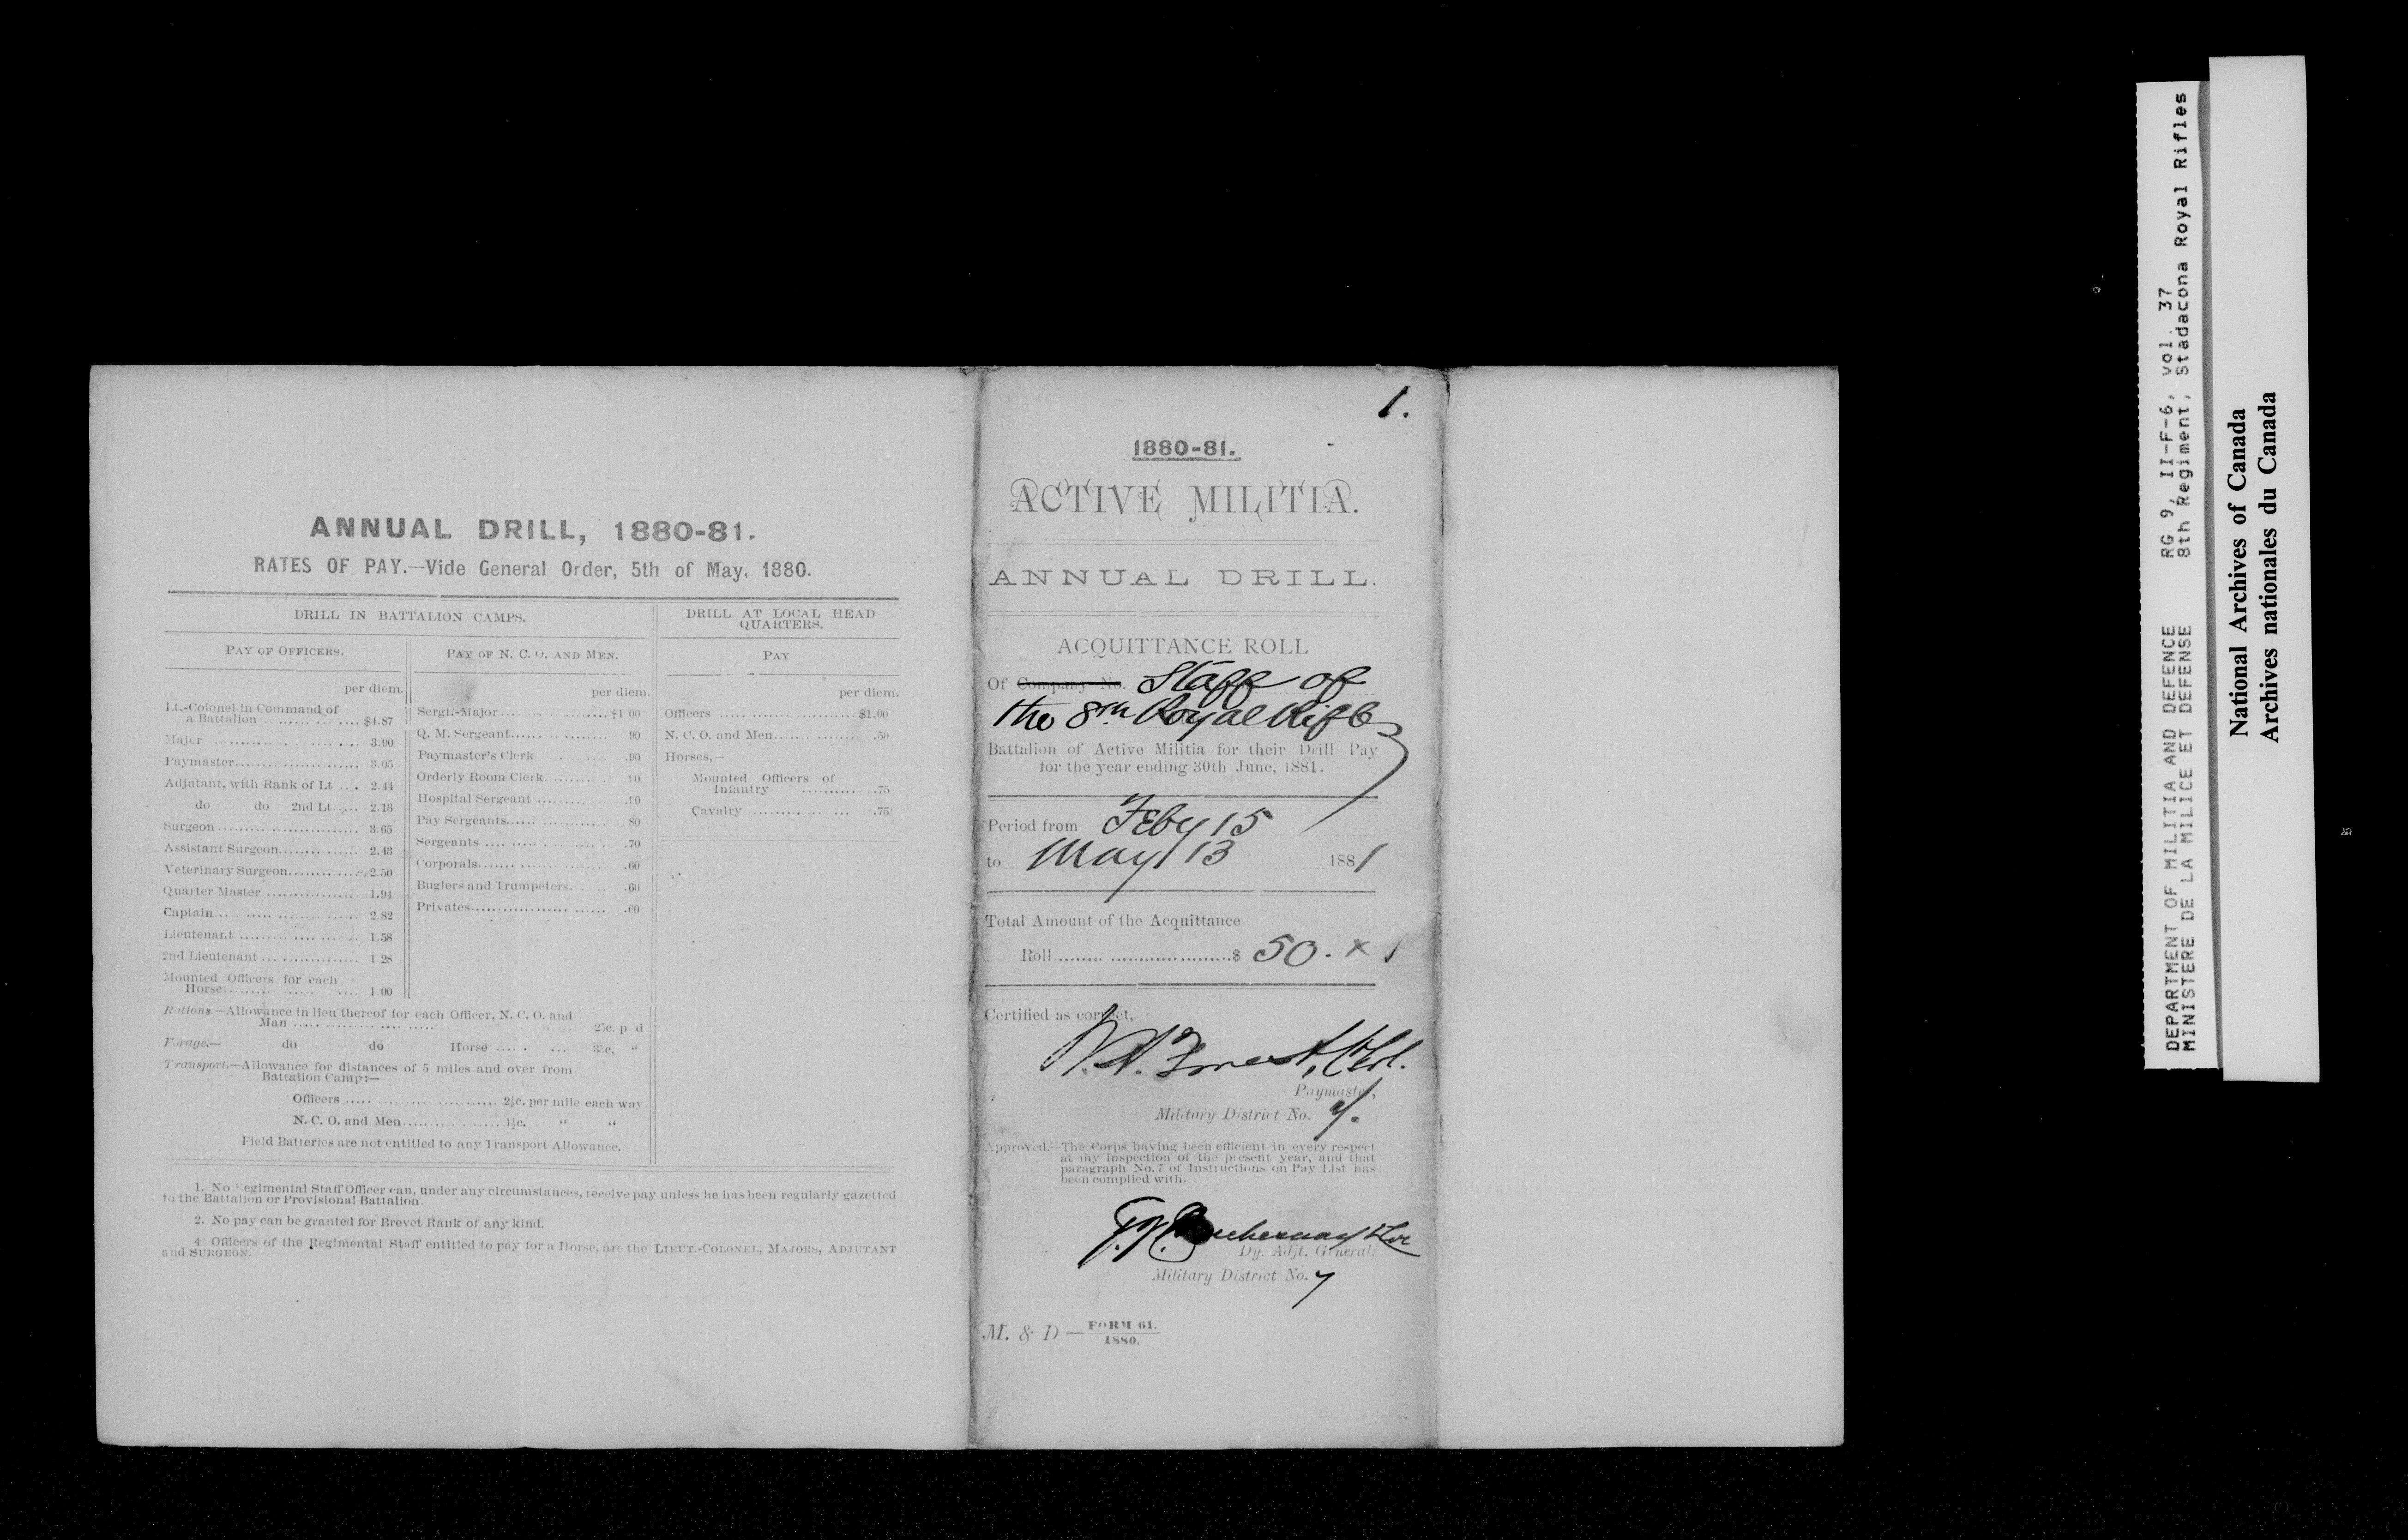 ANNUAL DRILL, 1880-81.
RATES OF PAY.—Vide General Order, 5th of May, 1880.
DRILL IN BATTALION CAMPS.
PAY OF OFFICERS.
per diem.
Lt.-Colonel in Command of
a Battalion ........ $4.87
Major ........ 3.90
Paymaster........ 3.05
Adjutant, with Rank of Lt .... 2.44
do do 2nd Lt..... 2.13
Surgeon........ 3.65
Assistant Surgeon........ 2.43
Veterinary Surgeon........ 2.50
Quarter Master ........ 1.94
Captain........ 2.82
Lieutenant ........ 1.58
2nd Lieutenant ........ 1 28
Mounted Officers for each
Horse........ 1 00
PAY OF N. C. O. AND MEN.
per diem.
Sergt.-Major........ $1 00
Q. M. Sergeant........ 90
Paymaster's Clerk .90
Orderly Room Clerk........ .90
Hospital Sergeant ........ .90
Pay Sergeants........ 80
Sergeants ........ .70
Corporals........ .60
Buglers and Trumpeters. .60
Privates........ .60
DRILL AT LOCAL HEAD
QUARTERS.
PAY
per diem.
Officers ........ $1.00
N. C. O. and Men........ .50
Horses,—
Mounted Officers of
Infantry ........ .75
Cavalry ........ .75
Rations.—Allowance in lieu thereof for each Officer, N. C. O. and
Man ........ 25c. p d
Forage.— do do Horse ........ “
Transport.—Allowance for distances of 5 miles and over from
Battalion Camp:—
Officers ........ 2½c. per mile each way
N. C. O. and Men........ 1½c. “ “
Field Batteries are not entitled to any Transport Allowance.
1. No Regimental Staff Officer can, under any circumstances, receive pay unless he has been regularly gazetted
to the Battalion or Provisional Battalion.
2. No pay can be granted for Brevet Rank of any kind.
4 Officers of the Regimental Staff entitled to pay for a Horse, are the LIEUT.-COLONEL, MAJORS, ADJUTANT
and SURGEON.
1.
1880-81.
ACTIVE MILITIA.
ANNUAL DRILL.
ACQUITTANCE ROLL
Of Company No. Staff of
the 8th Royal Rifles
Battalion of Active Militia for their Drill Pay
for the year ending 30th June, 1881.
Period from Feby 15
to May 13 1881
Total Amount of the Acquittance
Roll ........ $ 50. x
Certified as correct,
Forrest, Lt Col.
Paymaster,
Military District No. 7.
Approved.—The Corps having been efficient in every respect
at my inspection of the present year, and that
paragraph No. 7 of Instructions on Pay List has
been complied with.
Dy. Adjt. General.
Military District No. 7
M. & D — FORM 61.
1880.
DEPARTMENT OF MILITIA AND DEFENCE RG 9, II-F-6, vol. 37
MINISTERE DE LA MILICE ET DEFENSE 8th Regiment, Stadacona Royal Rifles
National Archives of Canada
Archives nationales du Canada